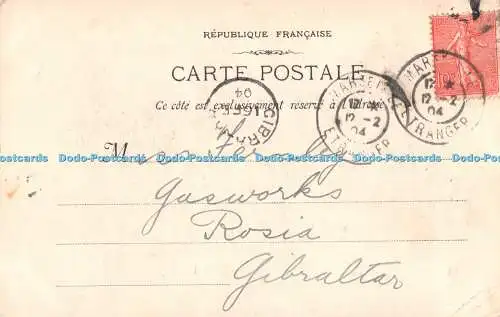 RÉPUBLIQUE FRANÇAISE
CARTE POSTALE
Ce côté est exclusivement réservé à l'adresse
MARSEILLE
12 -2
04
ETRANGER
MARSEILLE
12 -2
04
ETRANGER
GIBRALTAR
16 FE
04
10
Dodo-Postcards Dodo-Postcards Dodo-Postcards Dodo-Postcards Dodo-Postcards Dodo-Postcards Dodo-Postcards
Miss
Gasworks
Rosia
Gibraltar